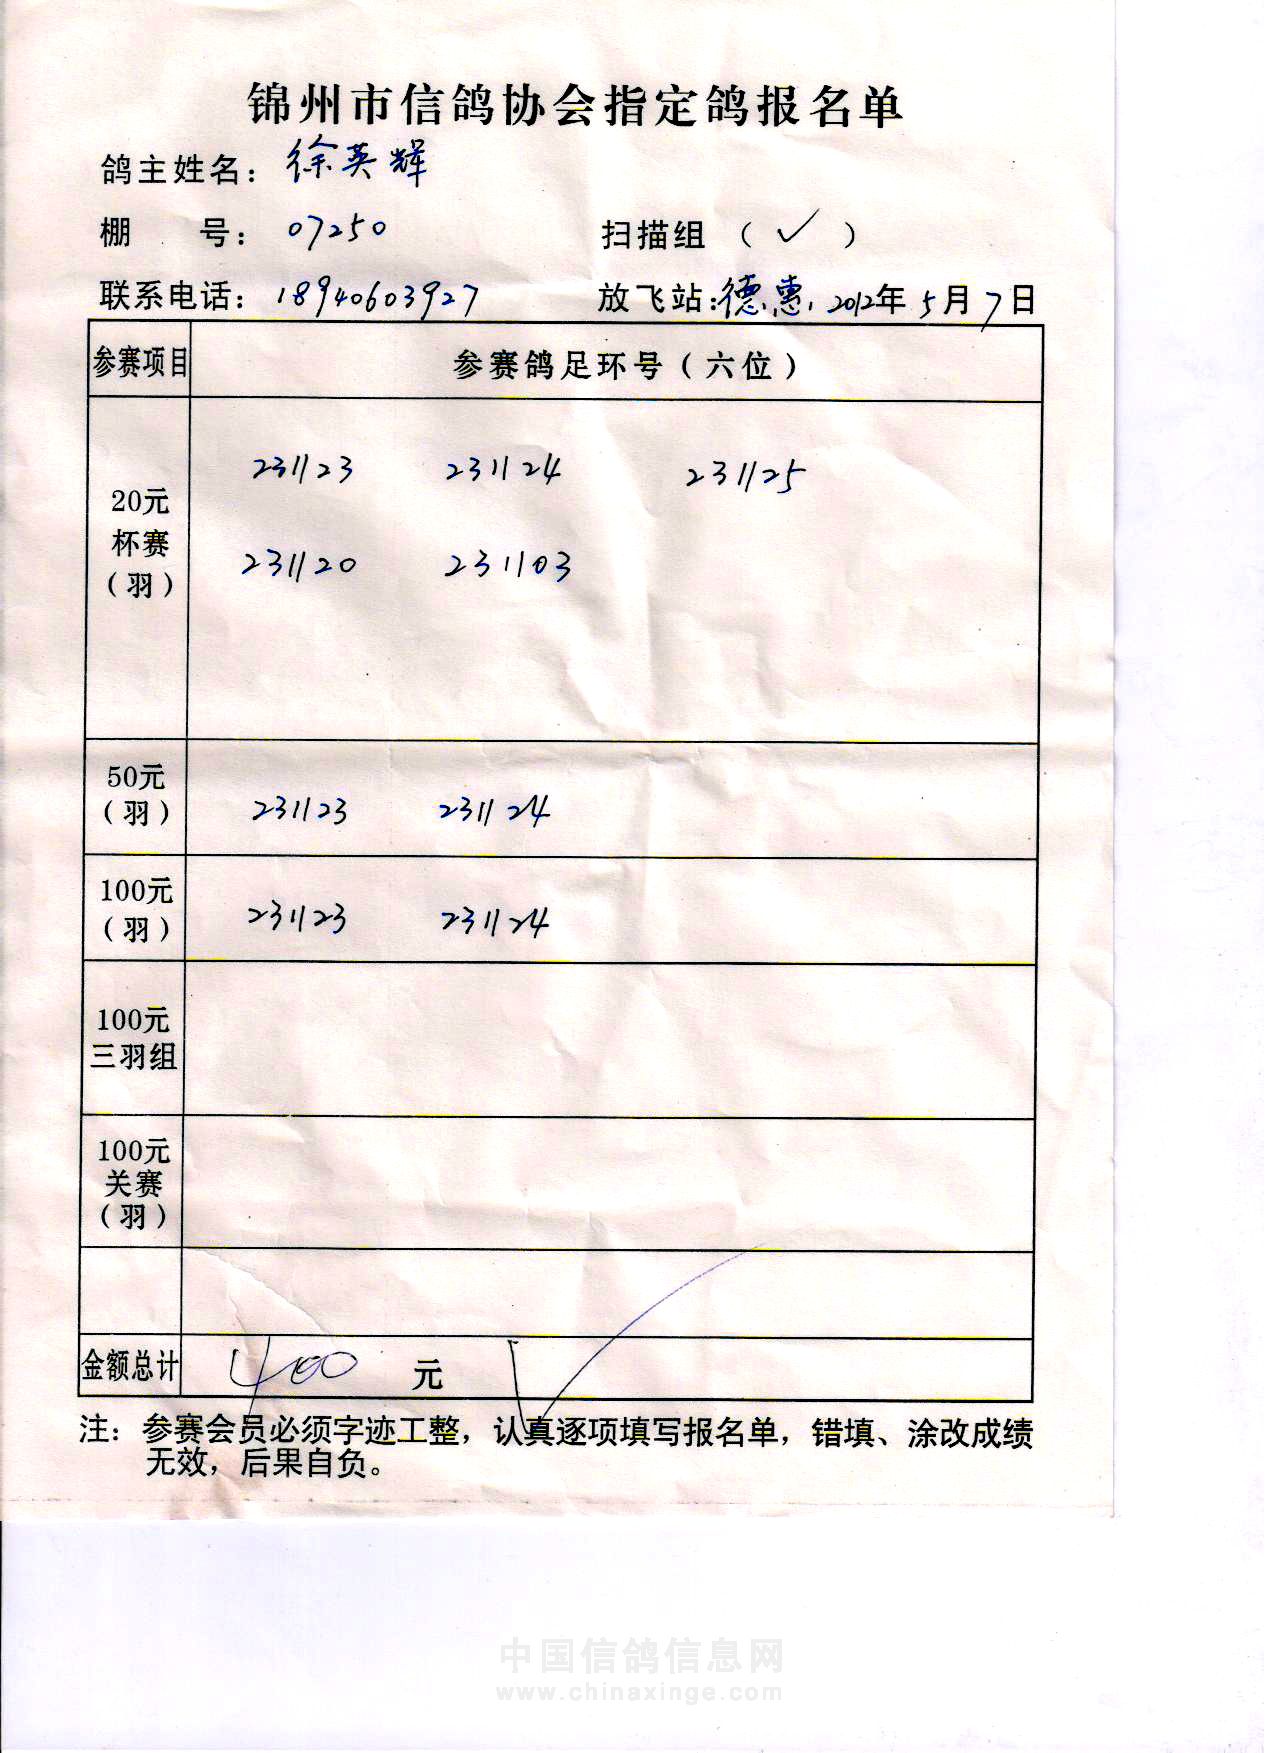 锦州市信鸽协会指定鸽报名单
鸽主姓名：徐英辉
棚 号：07250 扫描组（✓）
联系电话：18940603927 放飞站：德惠 2012年5月7日
参赛项目 参赛鸽足环号（六位）
20元
杯赛
（羽）
231123 231124 231125
231120 231103
50元
（羽）
231123 231124
100元
（羽）
231123 231124
100元
三羽组
100元
关赛
（羽）
金额总计 400 元
注：参赛会员必须字迹工整，认真逐项填写报名单，错填、涂改成绩
无效，后果自负。
中国信鸽信息网
www.chinaxinge.com